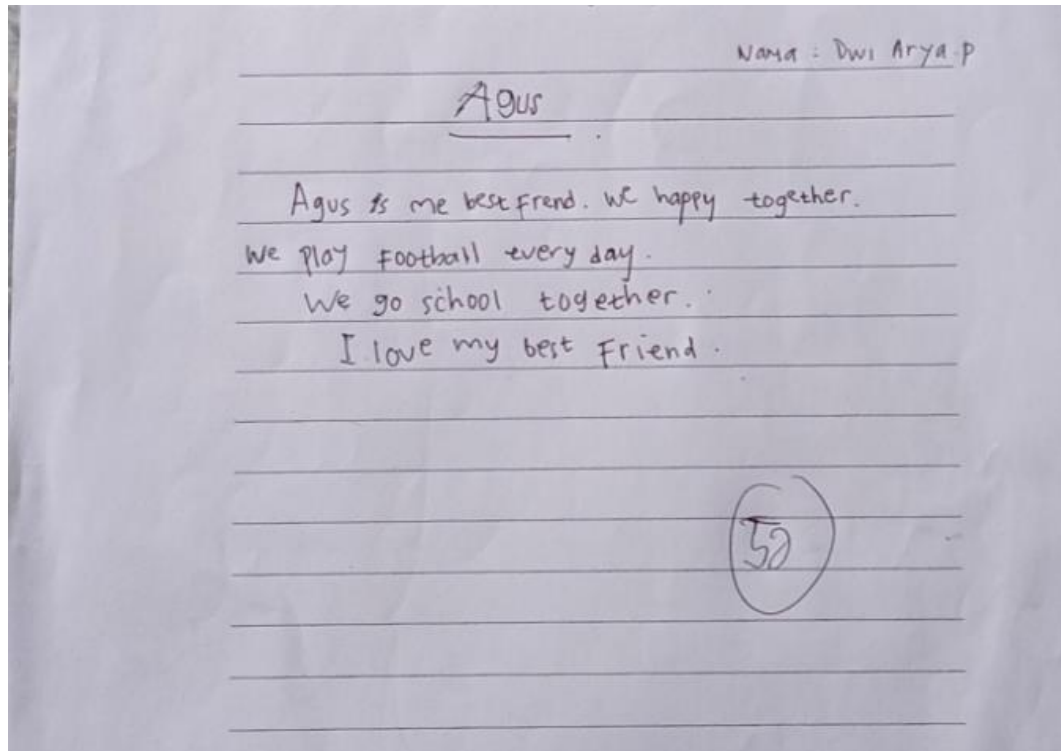 Nama : Dwi Arya.P
Agus
Agus is me best Frend. We happy together.
We play Football every day.
We go school together.
I love my best Friend.
50